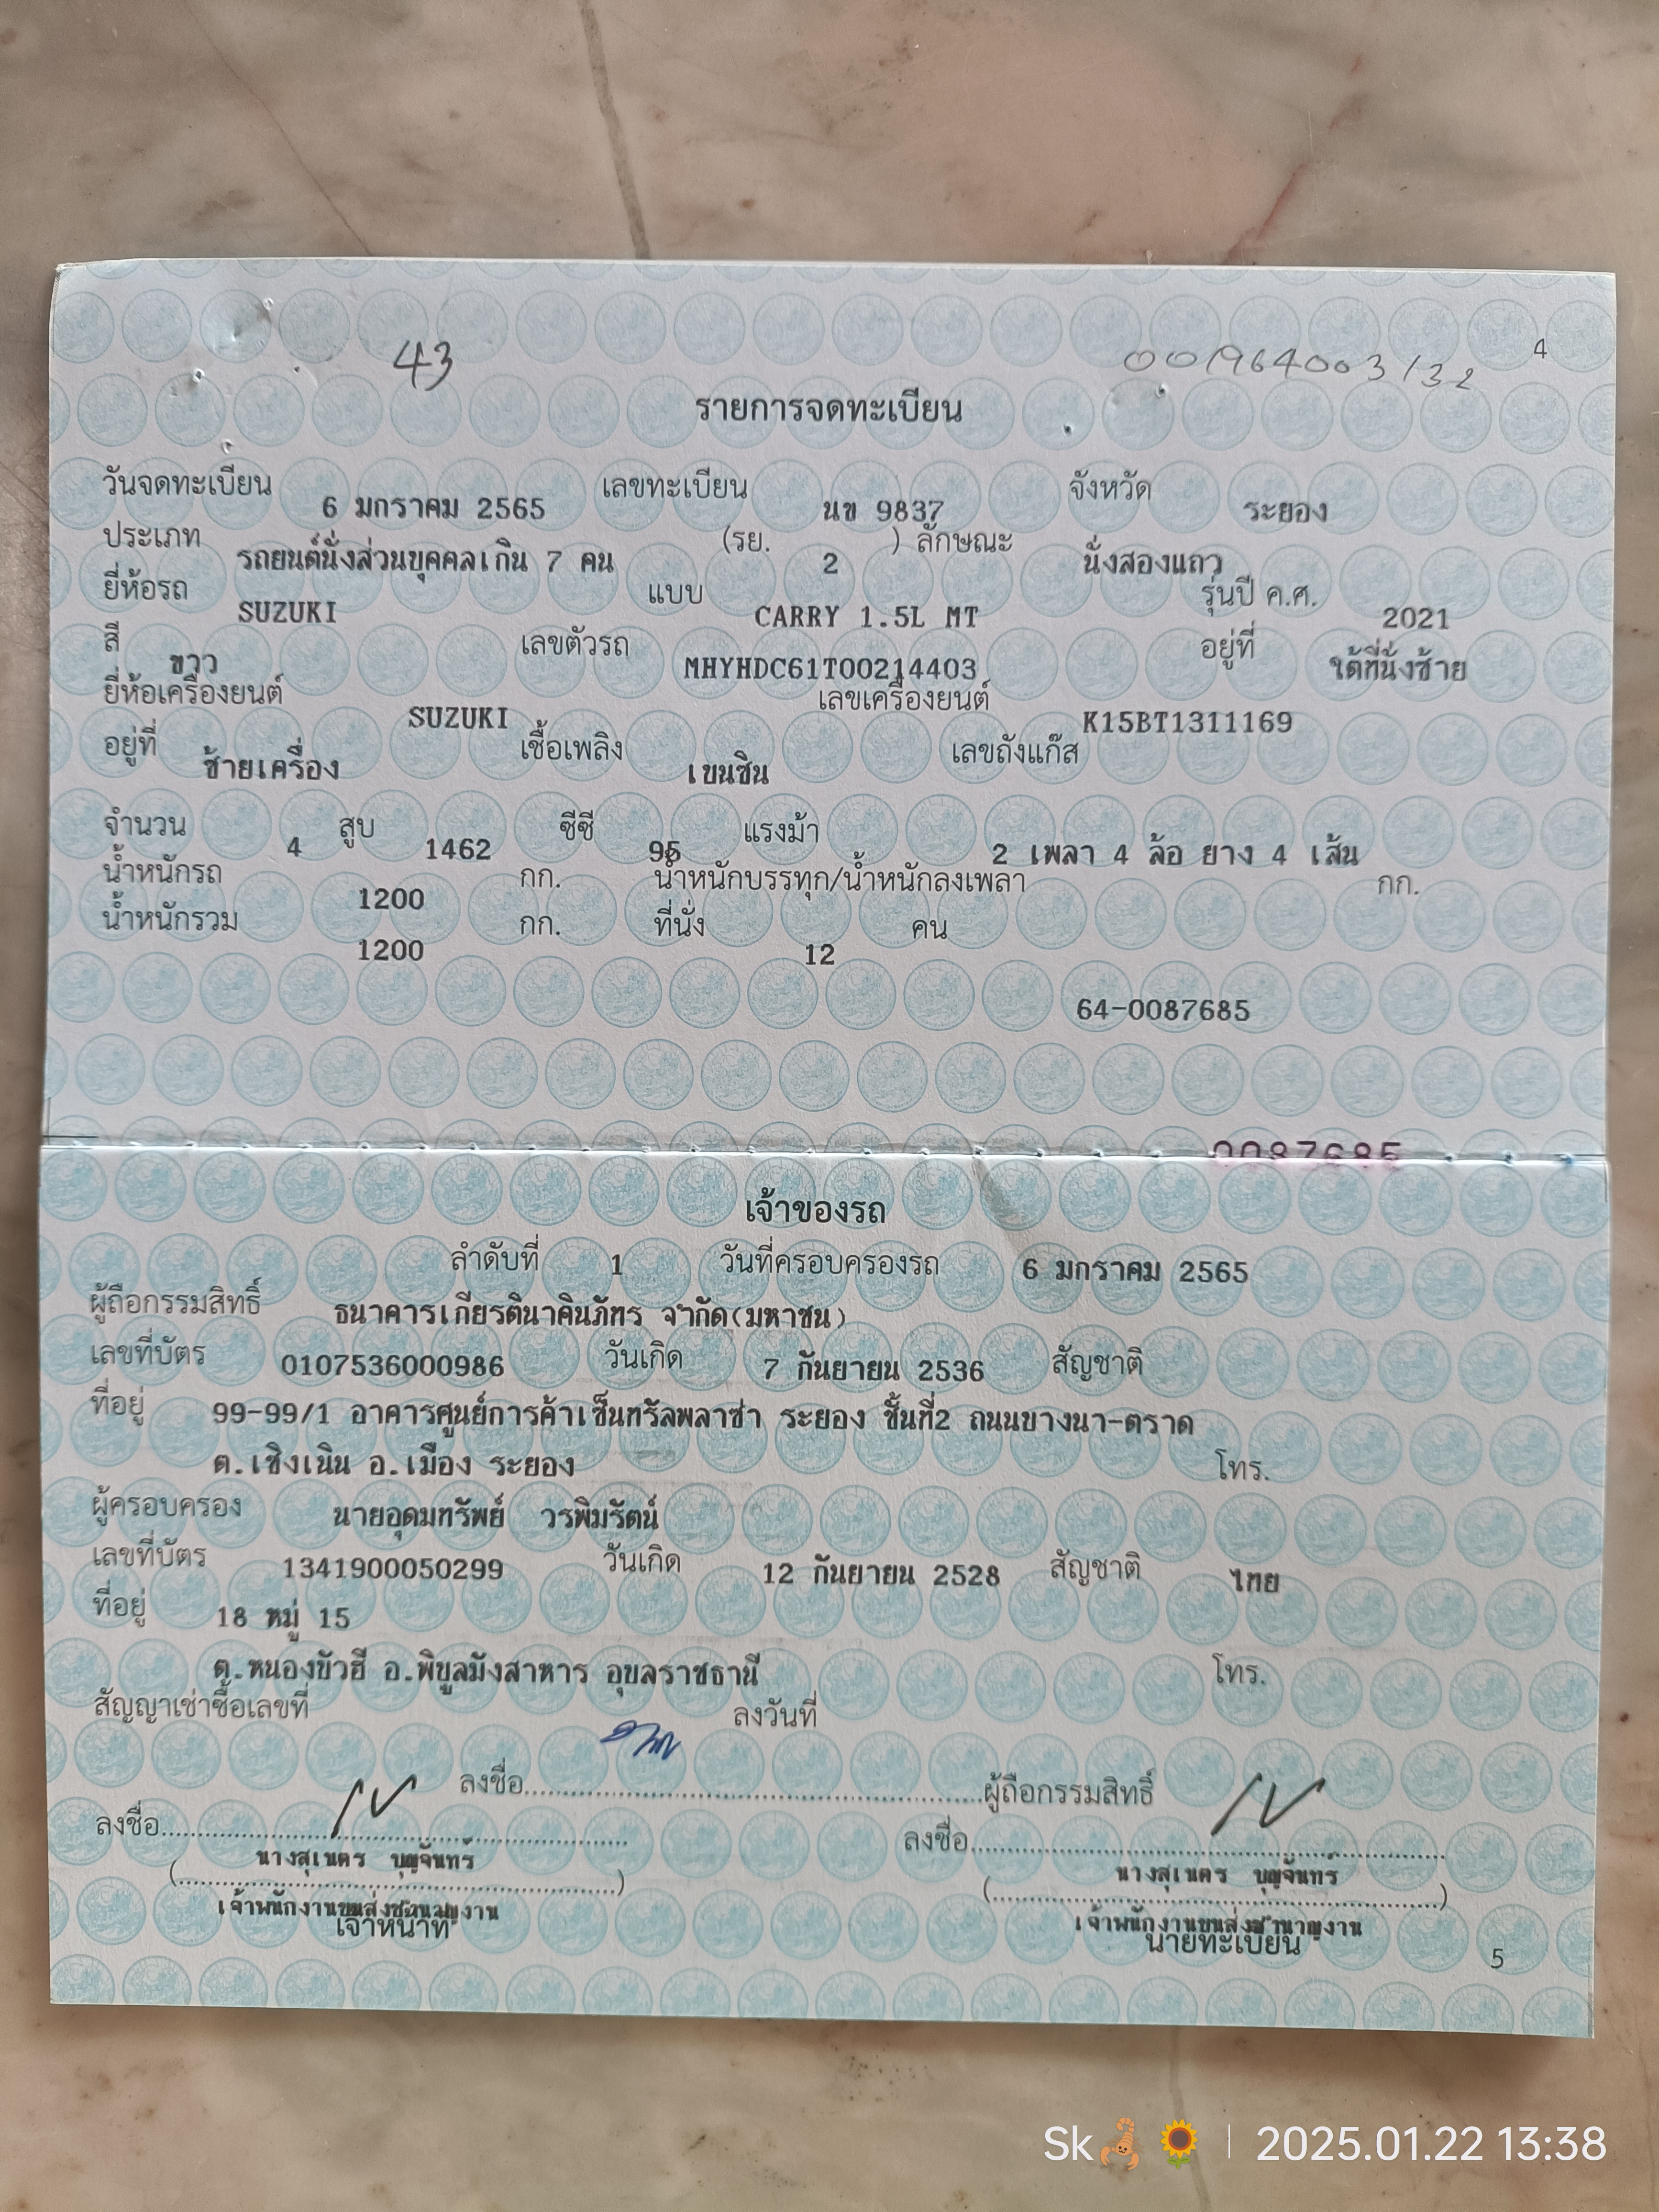 43
001964003132
4
รายการจดทะเบียน
วันจดทะเบียน 6 มกราคม 2565 เลขทะเบียน นข 9837 จังหวัด ระยอง
ประเภท รถยนต์นั่งส่วนบุคคลเกิน 7 คน (รย. 2 ) ลักษณะ นั่งสองแถว
ยี่ห้อรถ SUZUKI แบบ CARRY 1.5L MT รุ่นปี ค.ศ. 2021
สี ขาว เลขตัวรถ MHYHDC61T00214403 อยู่ที่ ใต้ที่นั่งซ้าย
ยี่ห้อเครื่องยนต์ SUZUKI เลขเครื่องยนต์ K15BT1311169
อยู่ที่ ซ้ายเครื่อง เชื้อเพลิง เบนซิน เลขถังแก๊ส
จำนวน 4 สูบ 1462 ซีซี 95 แรงม้า 2 เพลา 4 ล้อ ยาง 4 เส้น
น้ำหนักรถ 1200 กก. น้ำหนักบรรทุก/น้ำหนักลงเพลา กก.
น้ำหนักรวม 1200 กก. ที่นั่ง 12 คน
64-0087685
0087685
เจ้าของรถ
ลำดับที่ 1 วันที่ครอบครองรถ 6 มกราคม 2565
ผู้ถือกรรมสิทธิ์ ธนาคารเกียรตินาคินภัทร จำกัด(มหาชน)
เลขที่บัตร 0107536000986 วันเกิด 7 กันยายน 2536 สัญชาติ
ที่อยู่ 99-99/1 อาคารศูนย์การค้าเซ็นทรัลพลาซ่า ระยอง ชั้นที่2 ถนนบางนา-ตราด
ต.เชิงเนิน อ.เมือง ระยอง โทร.
ผู้ครอบครอง นายอุดมทรัพย์ วรพิมรัตน์
เลขที่บัตร 1341900050299 วันเกิด 12 กันยายน 2528 สัญชาติ ไทย
ที่อยู่ 18 หมู่ 15
ต.หนองบัวฮี อ.พิบูลมังสาหาร อุบลราชธานี โทร.
สัญญาเช่าซื้อเลขที่ ลงวันที่
ลงชื่อ ผู้ถือกรรมสิทธิ์
ลงชื่อ ลงชื่อ
(นางสุเนตร บุญจันทร์) (นางสุเนตร บุญจันทร์)
เจ้าพนักงานขนส่งชำนาญงาน เจ้าพนักงานขนส่งชำนาญงาน
เจ้าหน้าที่ นายทะเบียน
5
Sk🦂🌻 | 2025.01.22 13:38